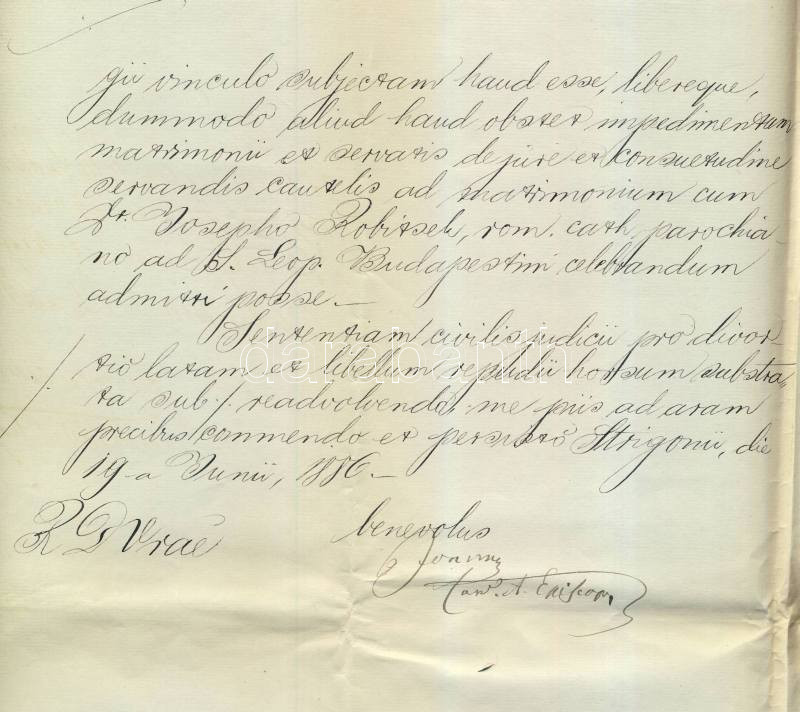 gii vinculo subjectam haud esse, libereque,
dummodo aliud haud obstet impedimentum
matrimonii et servatis de jure et consuetudine
servandis cautelis ad matrimonium cum
Dr. Josepho Robitsek, rom. cath. parochia-
no ad S. Leop. Budapestini celebrandum
admitti posse. —
Sententiam civilis judicii pro divor-
tio latam et libellum repudii horsum substra-
ta sub ·/. readvolvendo, me piis ad aram
precibus commendo et persisto Strigonii, die
19-a Junii, 1886. —
R D Vrae
benevolus
Joannes
Card. A. Episcop.
darabanth